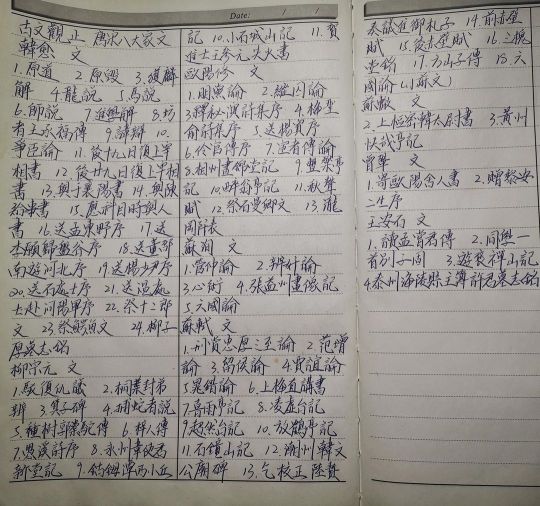 Date:
古文觀止 唐宋八大家文
韓愈 文
1.原道 2.原毀 3.獲麟
解 4.龍說 5.馬說
6.師說 7.進學解 8.圬
者王承福傳 9.諱辯 10.
爭臣論 11.後十九日復上宰
相書 12.後廿九日復上宰相
書 13.與于襄陽書 14.與陳
給事書 15.應科目時與人
書 16.送孟東野序 17.送
李愿歸盤谷序 18.送董邵
南遊河北序 19.送楊少尹序
20.送石處士序 21.送溫處
士赴河陽軍序 22.祭十二郎
文 23.祭鱷魚文 24.柳子
厚墓志銘
柳宗元 文
1.駁復仇議 2.桐葉封弟
辨 3.箕子碑 4.捕蛇者說
5.種树郭橐駝傳 6.梓人傳
7.愚溪詩序 8.永州韋使君
新堂記 9.鈷鉧潭西小丘
記 10.小石城山記 11.賀
進士王參元失火書
歐陽修 文
1.朋黨論 2.縱囚論
3.釋秘演詩集序 4.梅聖
俞詩集序 5.送楊寘序
6.伶官傳序 7.宦者傳論
8.相州晝錦堂記 9.豐樂亭
記 10.醉翁亭記 11.秋聲
賦 12.祭石曼卿文 13.瀧
岡阡表
蘇洵 文
1.管仲論 2.辨奸論
3.心術 4.張益州畫像記
5.六國論
蘇軾 文
1.刑賞忠厚之至論 2.范增
論 3.留侯論 4.賈誼論
5.晁錯論 6.上梅直講書
7.喜雨亭記 8.凌虛台記
9.超然台記 10.放鶴亭記
11.石鐘山記 12.潮州韓文
公廟碑 13.乞校正陸贄
奏議進御札子 14.前赤壁
賦 15.後赤壁賦 16.三槐
堂銘 17.方山子傳 18.六
國論(小蘇文)
蘇轍 文
2.上樞密韓太尉書 3.黃州
快哉亭記
曾鞏 文
1.寄歐陽舍人書 2.贈黎安
二生序
王安石 文
1.讀孟嘗君傳 2.同學一
首別子固 3.遊褒禪山記
4.泰州海陵縣主簿許君墓志銘